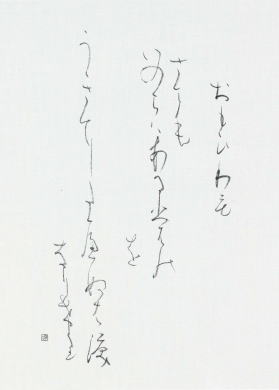 おもひわび
さても
いのちはあるもの
を
うきにたへぬは涙
なりけり